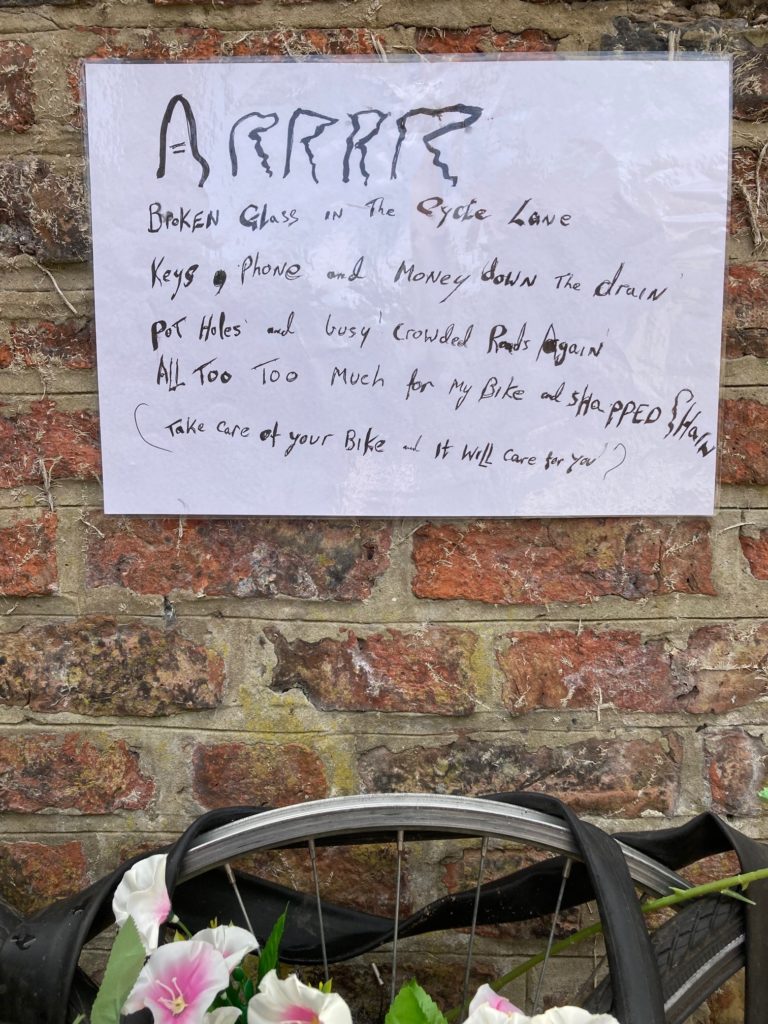 ARRRR
BROKEN Glass in The Cycle Lane
Keys, Phone and Money down The drain
Pot Holes and busy Crowded Roads Again
All Too Too Much for My Bike and SNAPPED Chain
(Take Care of your Bike and It Will Care for you)